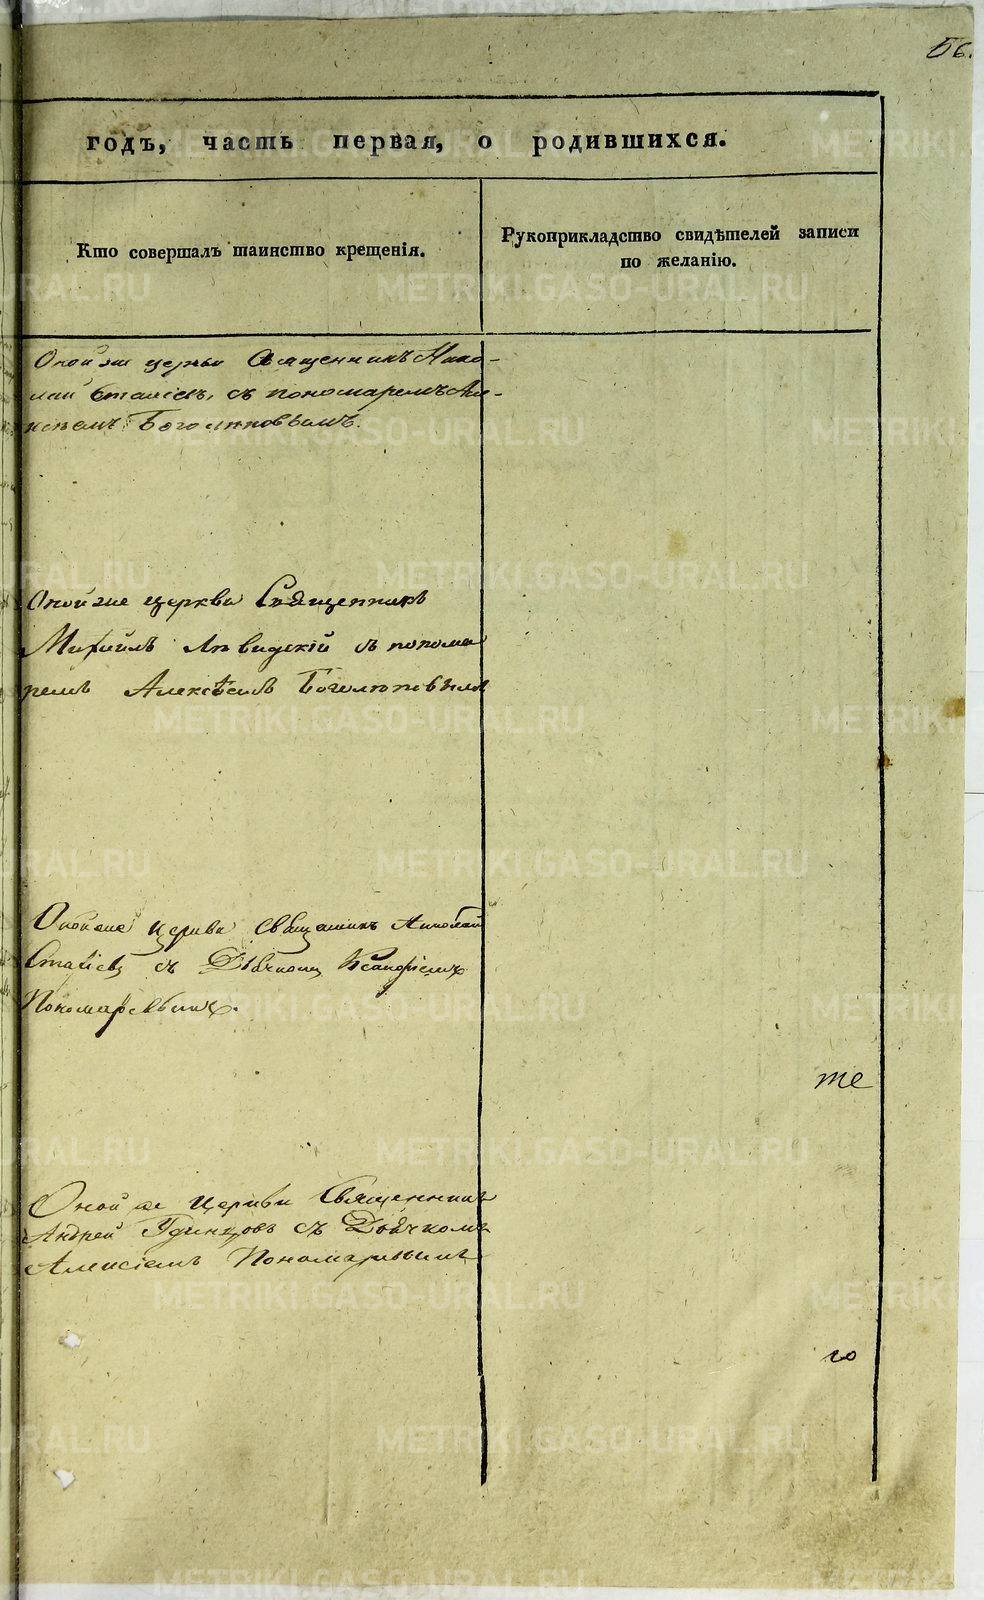 56.
годъ, часть первая, о родившихся.
Кто совершалъ таинство крещенія.
Рукоприкладство свидѣтелей записи
по желанію.
Оной же церкви Священникъ Нико-
лай Статіевъ, съ пономаремъ Але-
ксѣемъ Боголѣповымъ.
Оной же церкви Священникъ
Михаилъ Левидскій съ понома
ремъ Алексѣемъ Боголѣповымъ
Оной же Церкви Священникъ Николай
Статіевъ съ Дьячкомъ
Пономаревымъ.
те
Оной же Церкви Священникъ
Андрей Удинцовъ съ Дьячкомъ
Алексіемъ Пономаревымъ
го
METRIKI.GASO-URAL.RU